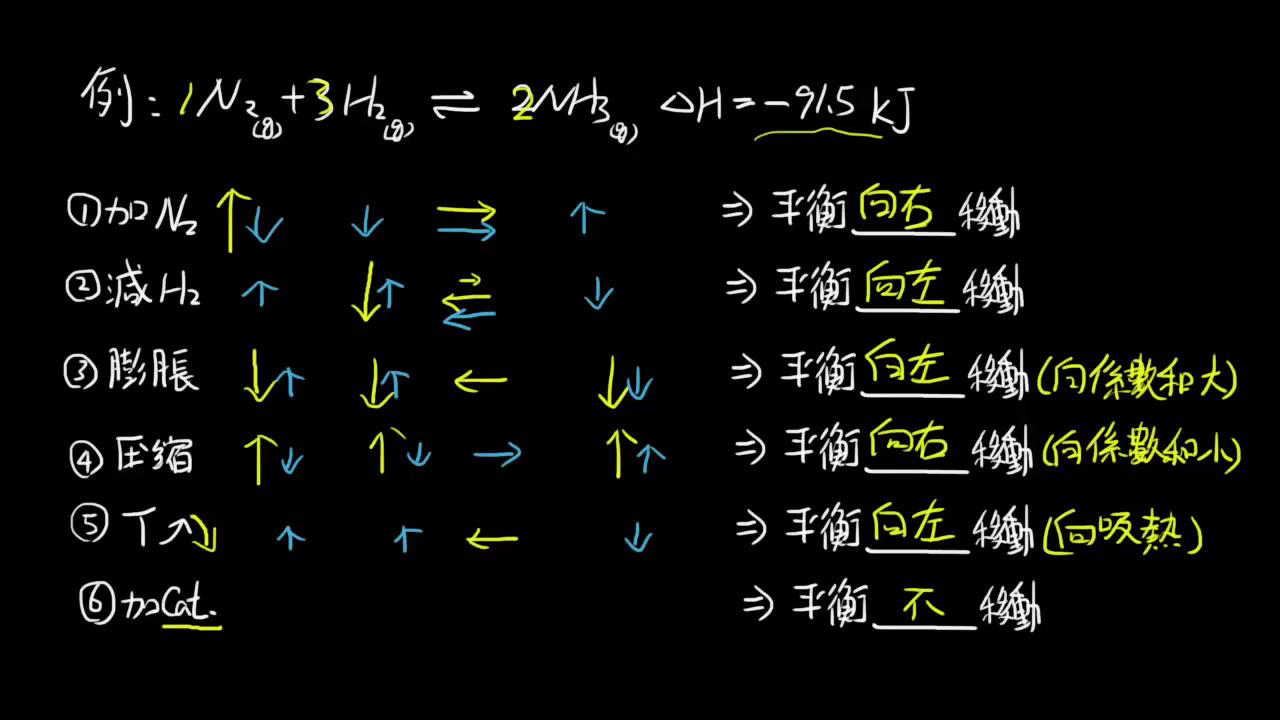 例：1N₂(g)+3H₂(g) ⇌ 2NH₃(g) △H=-91.5 kJ
①加N₂ ↑↓ ↓ → → ↑ ⇒ 平衡 向右 移動
②減H₂ ↑ ↓↑ → ← ← ↓ ⇒ 平衡 向左 移動
③膨脹 ↓↑ ↓↑ ← ↓↓ ⇒ 平衡 向左 移動 (向係數和大)
④圧縮 ↑↓ ↑↓ → ↑↑ ⇒ 平衡 向右 移動 (向係數和小)
⑤T↗↘ ↑ ↑ ← ↓ ⇒ 平衡 向左 移動 (向吸熱)
⑥加Cat. ⇒ 平衡 不 移動